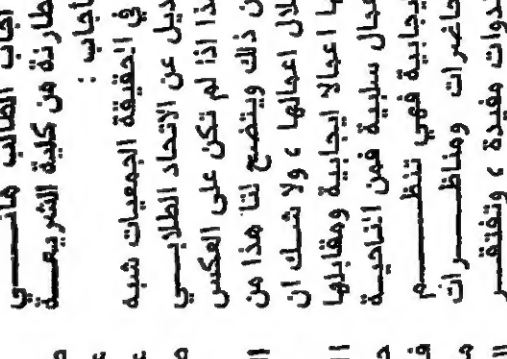 اجاب الطالب هانـــــي
طارنة من كلية الشريعـــة
اجاب :
في الحقيقة الجمعيات شبه
ديل عن الاتحاد الطلابـــي
ذا اذا لم تكن على العكس
ن ذلك ويتضح لنا هذا من
لال اعمالها ، ولا شـــك ان
ها اعمالا ايجابية ومقابلها
عمال سلبية فمن الناحيـــة
يجابية فهي تنظـــــــــم
حاضرات ومناظـــــرات
دوات مفيدة ، وتفتقـــر